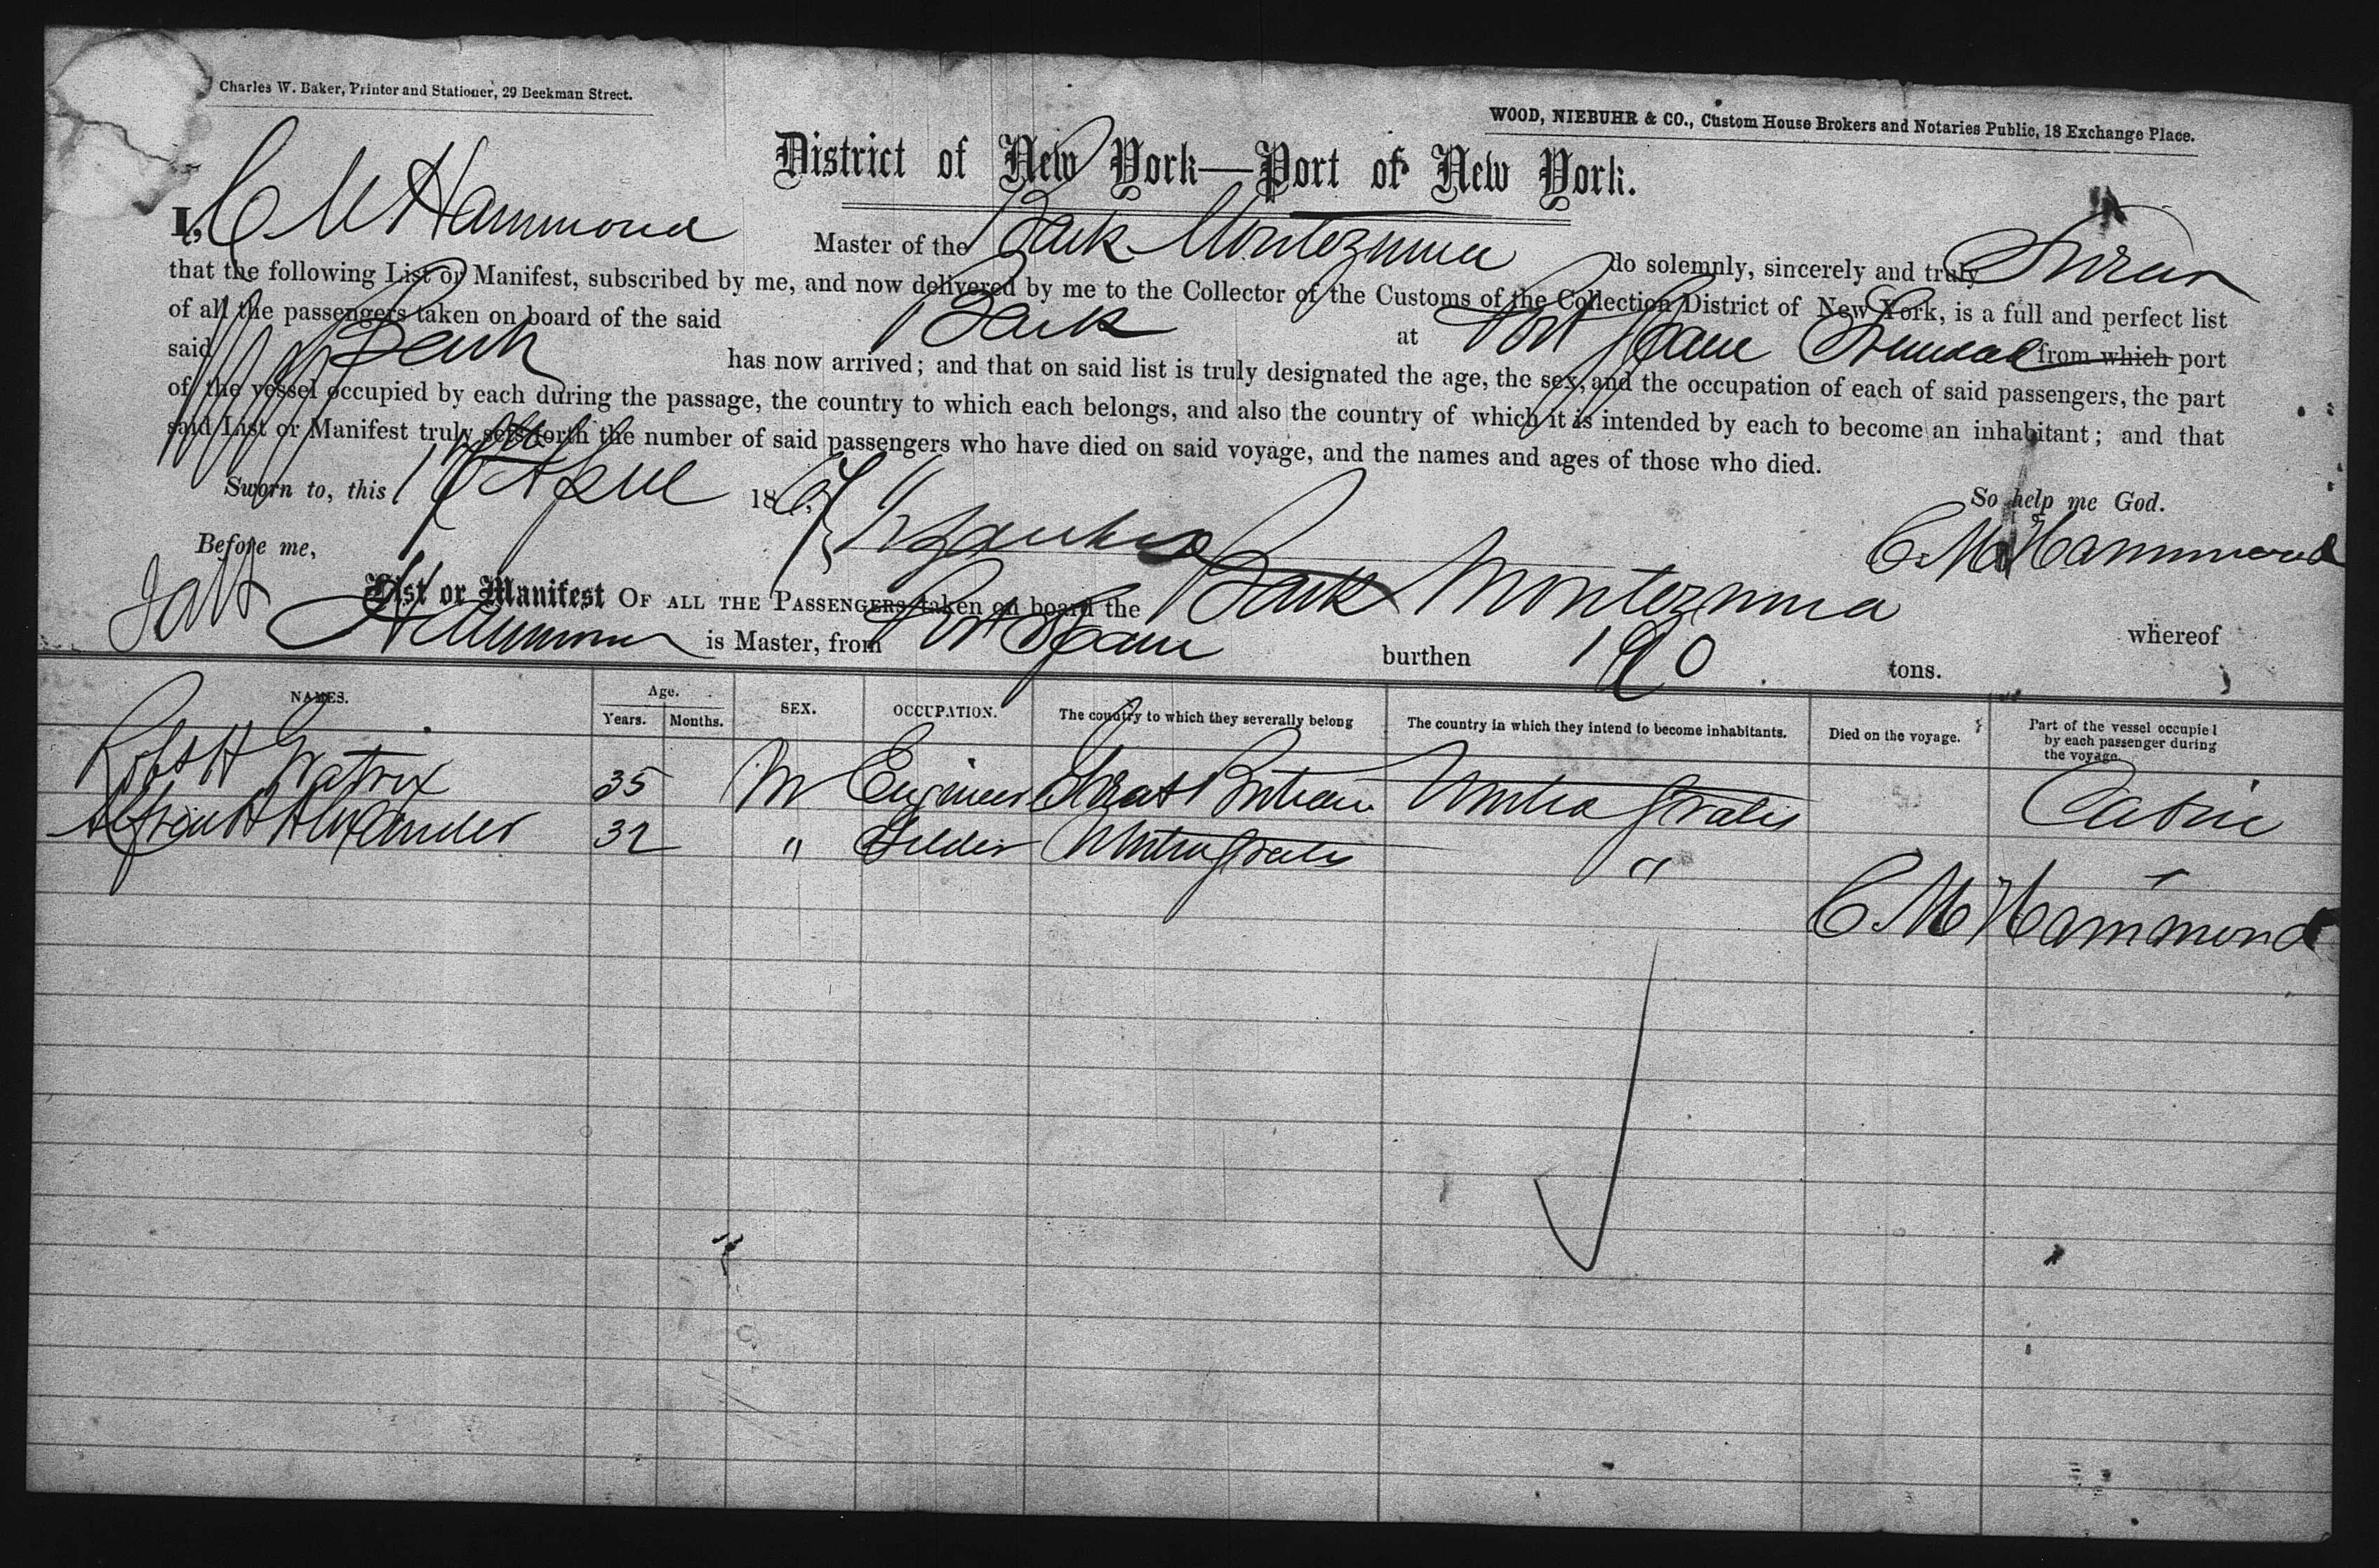 Charles W. Baker, Printer and Stationer, 29 Beekman Street.
WOOD, NIEBUHR & CO., Custom House Brokers and Notaries Public, 18 Exchange Place.
District of New York—Port of New York.
I, C M Hammond Master of the Bark Montezuma do solemnly, sincerely and truly Swear
that the following List or Manifest, subscribed by me, and now delivered by me to the Collector of the Customs of the Collection District of New York, is a full and perfect list
of all the passengers taken on board of the said Bark at Port Spain Trinidad from which port
said Bark has now arrived; and that on said list is truly designated the age, the sex, and the occupation of each of said passengers, the part
of the vessel occupied by each during the passage, the country to which each belongs, and also the country of which it is intended by each to become an inhabitant; and that
said List or Manifest truly sets forth the number of said passengers who have died on said voyage, and the names and ages of those who died.
Sworn to, this April 1867 So help me God.
Before me, C. M. Hammond
List or Manifest OF ALL THE PASSENGERS taken on board the Bark Montezuma whereof
Hammond is Master, from Port Spain burthen tons.
NAMES. Age. Years. Months. SEX. OCCUPATION. The country to which they severally belong The country in which they intend to become inhabitants. Died on the voyage. Part of the vessel occupied by each passenger during the voyage.
Robt H 35 M Engineer Great Britain United States Cabin
Alexander 32 " United States "
C. M. Hammond